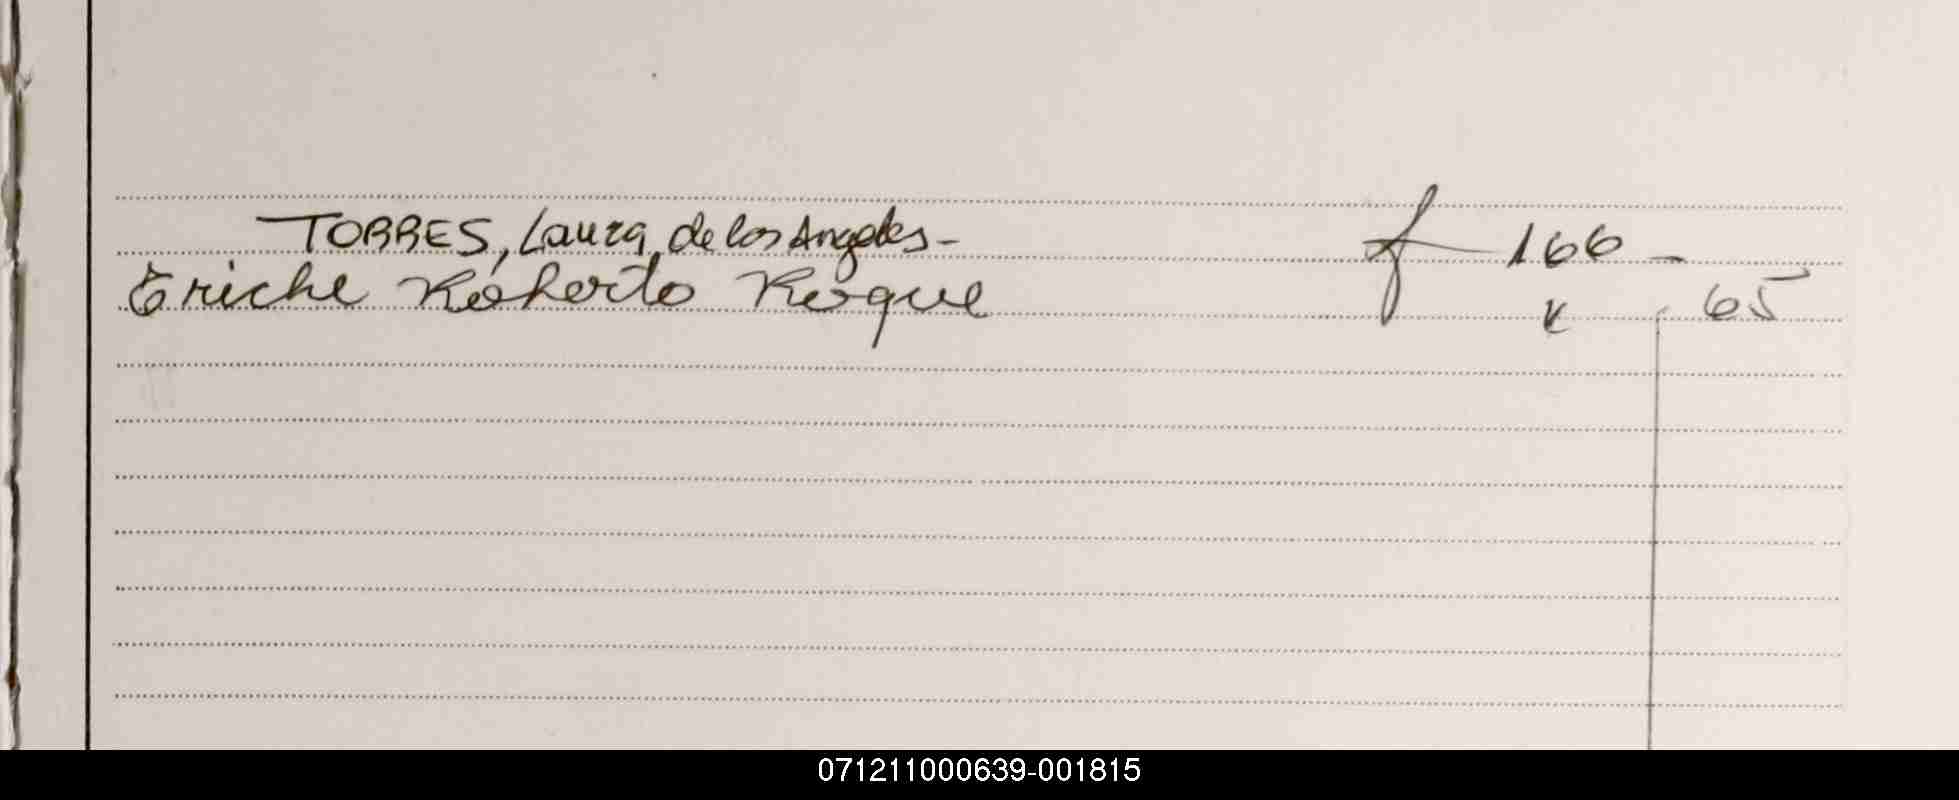 TORRES, Laura de los Angeles - f - 166 -
Eriche Roberto Roque v 65
071211000639-001815